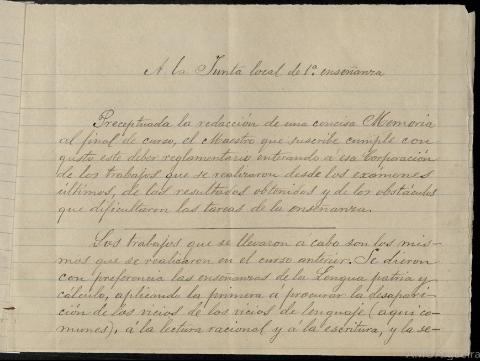 A la Junta local de 1ª. enseñanza
Preceptuada la redacción de una concisa Memoria
al final de curso, el Maestro que suscribe cumple con
gusto este deber reglamentario enterando á esa Corporación
de los trabajos que se realizaron desde los exámenes
últimos, de los resultados obtenidos y de los obstáculos
que dificultaron las tareas de la enseñanza.
Los trabajos que se llevaron á cabo son los mis-
mos que se realizaron en el curso anterior. Se dieron
con preferencia las enseñanzas de la Lengua patria y
cálculo, aplicando la primera á procurar la desapari-
ción de los vicios de los vicios de lenguaje (aquí co-
munes), á la lectura racional y á la escritura, y la se-